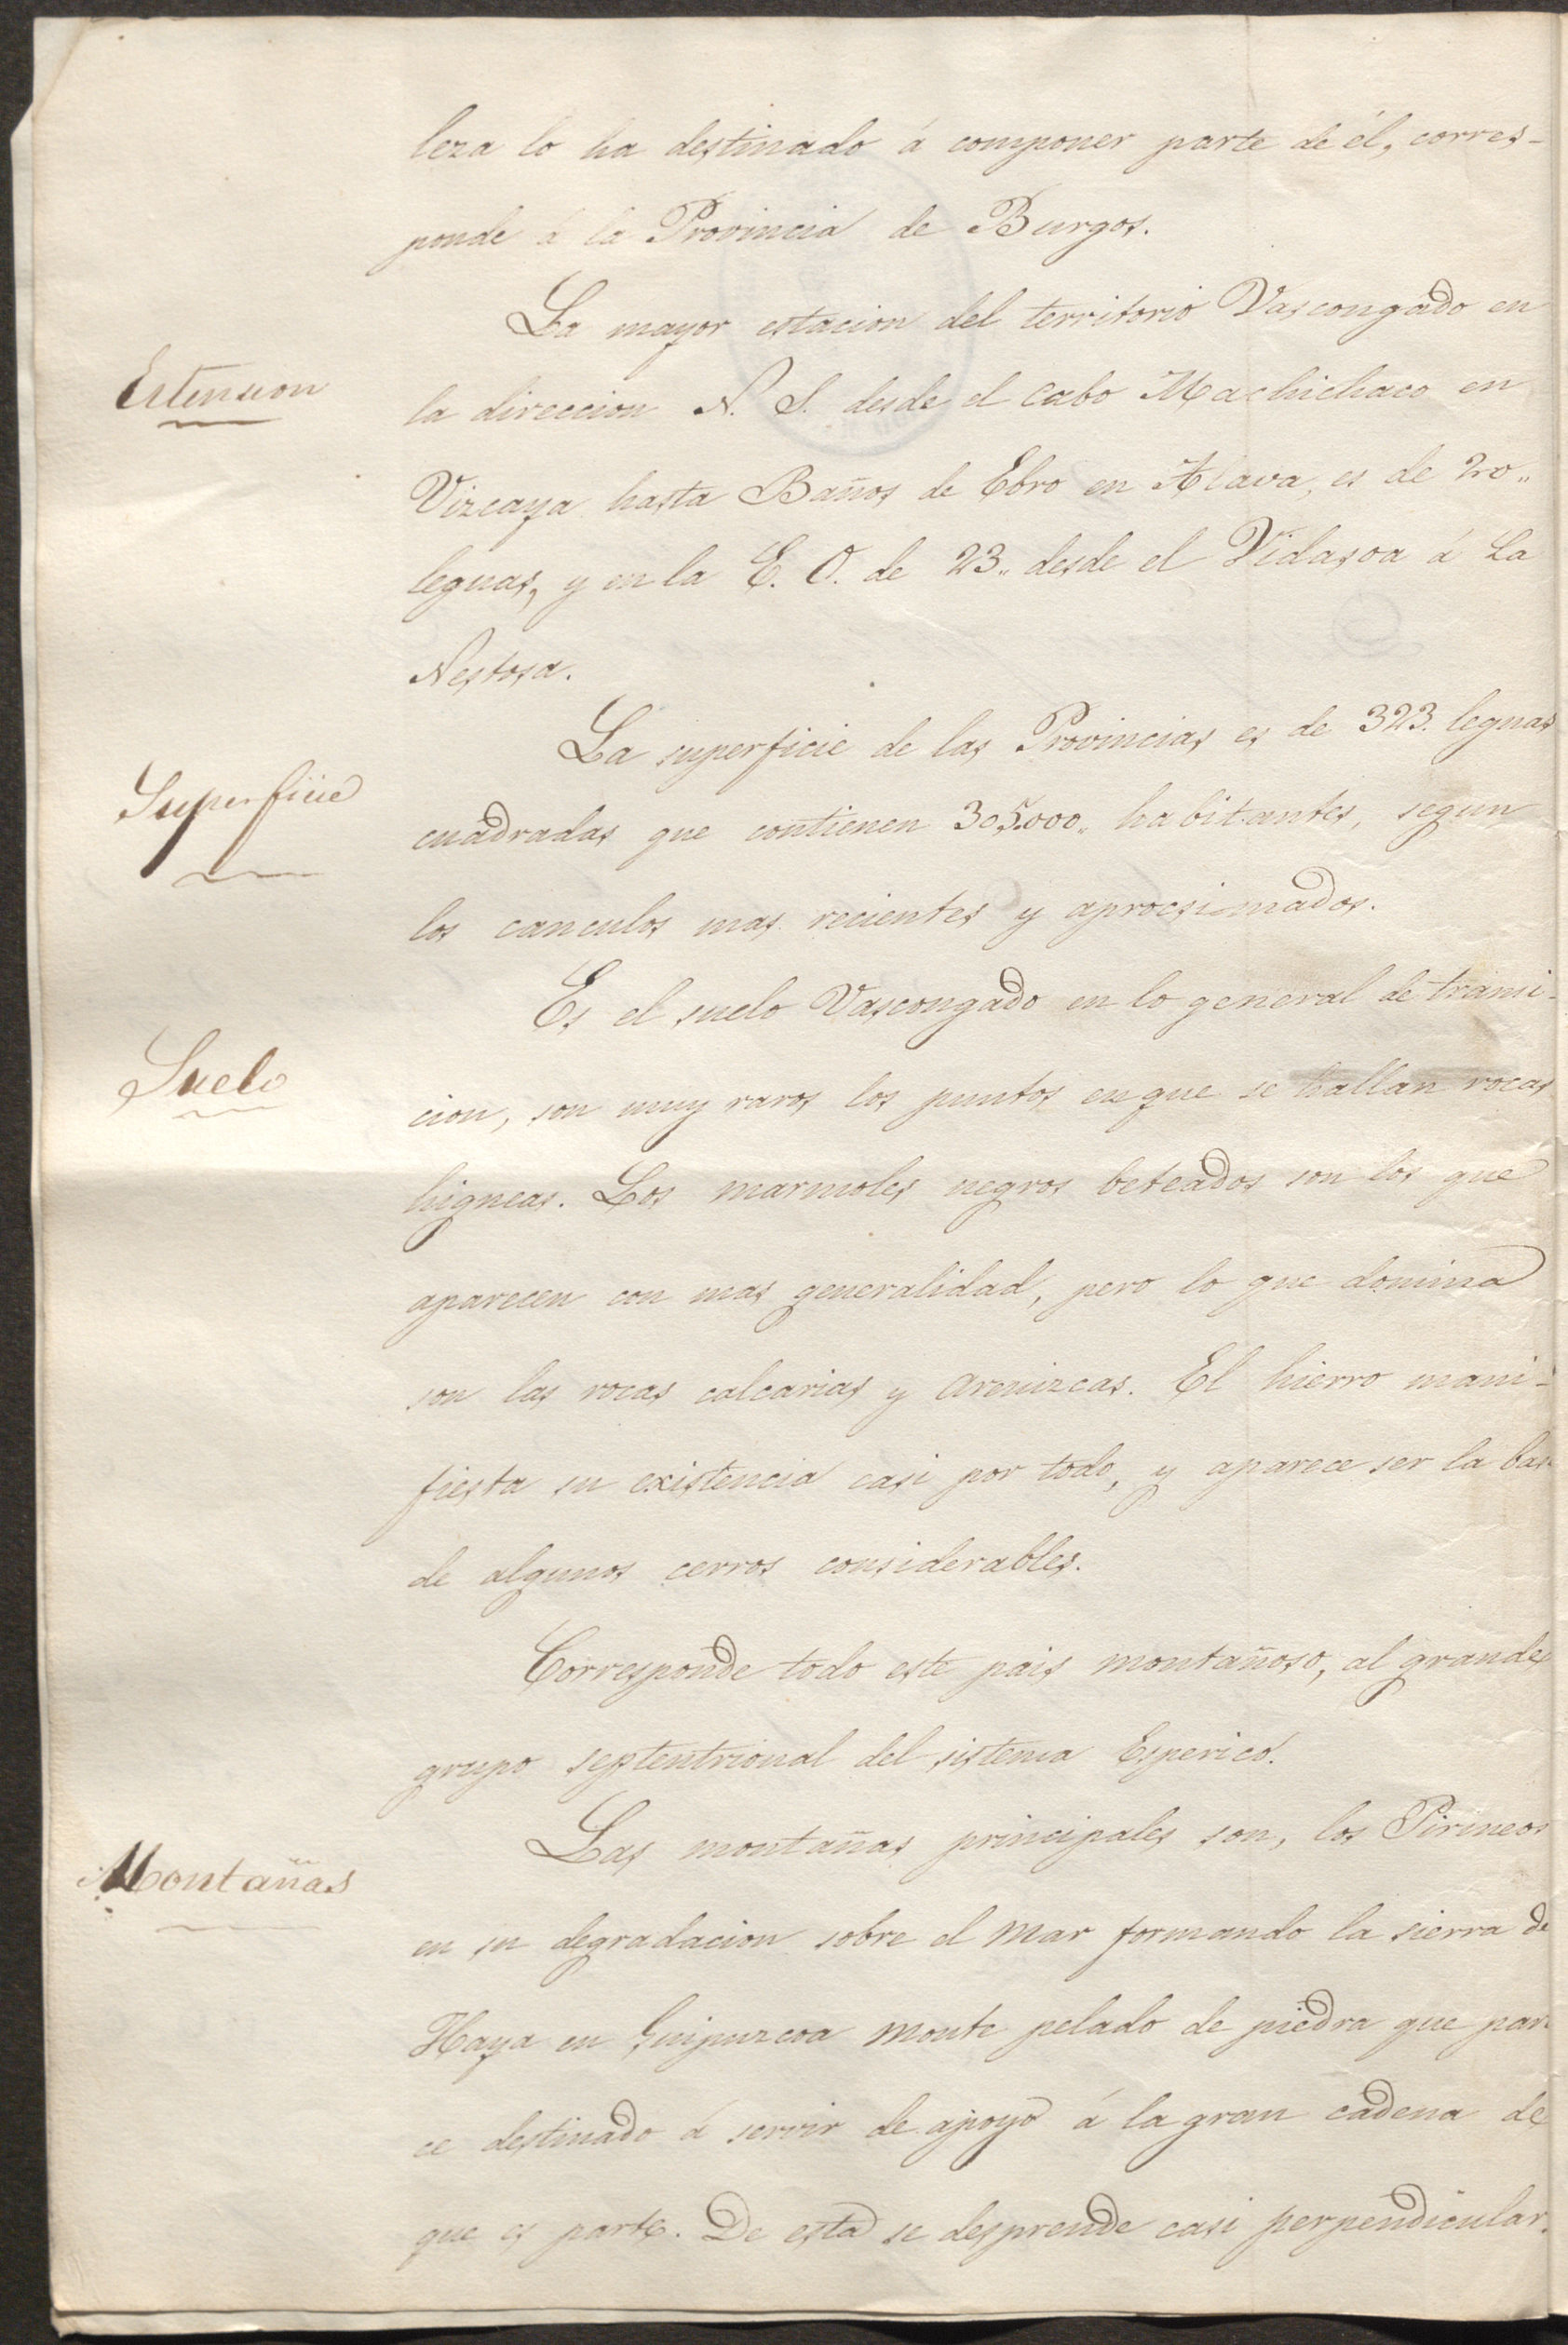 leza lo ha destinado á componer parte de él, corres-
ponde á la Provincia de Burgos.
Estension
La mayor estacion del territorio Vascongado en
la direccion N. S. desde el cabo Machichaco en
Vizcaya hasta Baños de Ebro en Alava, es de 20„
leguas, y en la E. O. de 23„ desde el Vidasoa á La
Nestosa.
Superficie
La superficie de las Provincias es de 323. leguas
cuadradas que contienen 305.000„ habitantes, segun
los canculos mas recientes y aprocsimados.
Suelo
Es el suelo Vascongado en lo general de transi-
cion, son muy raros los puntos en que se hallan rocas
higneas. Los marmoles negros beteados son los que
aparecen con mas generalidad, pero lo que domina
son las rocas calcarias y arenizcas. El hierro mani-
fiesta su existencia casi por todo, y aparece ser la bas
de algunos cerros considerables.
Corresponde todo este pais montañoso, al grande
grupo septentrional del sistema Esperico.
Montañas
Las montañas principales son, los Pirineos
en su degradacion sobre el mar formando la sierra de
Haya en Guipuzcoa monte pelado de piedra que pare
ce destinado á servir de apoyo á la gran cadena de
que es parte. De esta se desprende casi perpendicular.